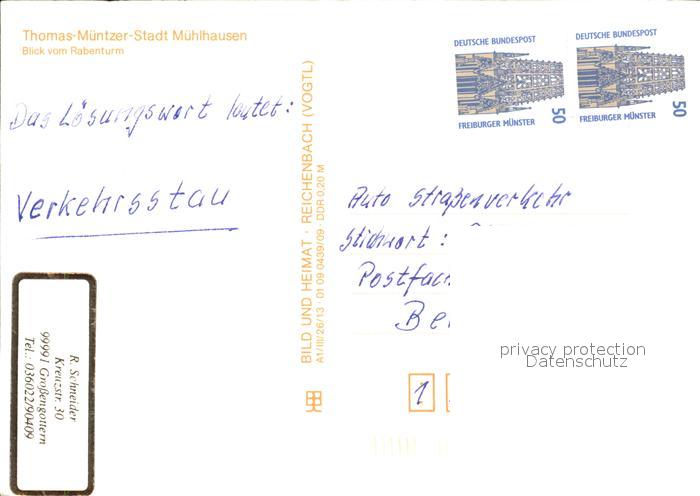 Thomas-Müntzer-Stadt Mühlhausen
Blick vom Rabenturm
Das Lösungswort lautet:
Verkehrsstau
R. Schneider
Kreuzstr. 30
99991 Großengottern
Tel.: 036022/90409
BILD UND HEIMAT · REICHENBACH (VOGTL)
A1/III/26/13 · 01 09 0439/09 · DDR 0,20 M
DEUTSCHE BUNDESPOST
50
FREIBURGER MÜNSTER
DEUTSCHE BUNDESPOST
50
FREIBURGER MÜNSTER
Auto Straßenverkehr
Stichwort:
Postfac
Be
1
privacy protection
Datenschutz